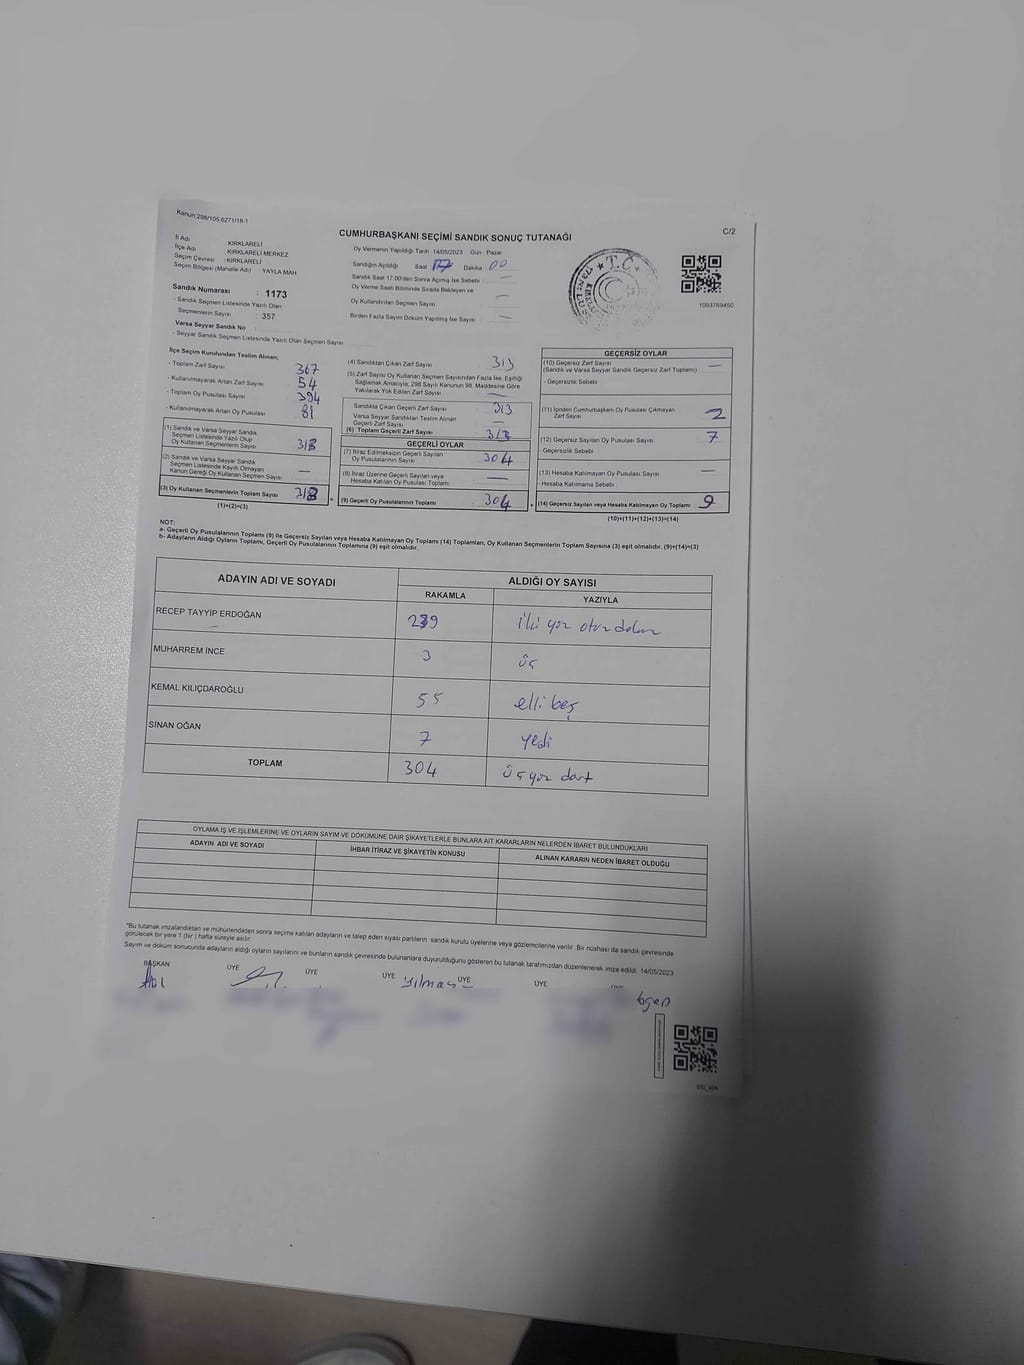 Kanun:298/105.6271/18-1
C/2
CUMHURBAŞKANI SEÇİMİ SANDIK SONUÇ TUTANAĞI
İl Adı : KIRKLARELİ
İlçe Adı : KIRKLARELİ MERKEZ
Seçim Çevresi : KIRKLARELİ
Seçim Bölgesi (Mahalle Adı) YAYLA MAH
Sandık Numarası : 1173
- Sandık Seçmen Listesinde Yazılı Olan
Seçmenlerin Sayısı : 357
Varsa Seyyar Sandık No
- Seyyar Sandık Seçmen Listesinde Yazılı Olan Seçmen Sayısı
Oy Vermenin Yapıldığı Tarih 14/05/2023 Gün: Pazar
Sandığın Açıldığı Saat 17 Dakika 00
Sandık Saat 17:00'den Sonra Açılmış İse Sebebi : —
Oy Verme Saati Bitiminde Sırada Bekleyen ve
Oy Kullandırılan Seçmen Sayısı —
Birden Fazla Sayım Döküm Yapılmış İse Sayısı : —
T.C.
1093769450
İlçe Seçim Kurulundan Teslim Alınan;
- Toplam Zarf Sayısı 367
- Kullanılmayarak Artan Zarf Sayısı 54
- Toplam Oy Pusulası Sayısı 394
- Kullanılmayarak Artan Oy Pusulası 81
(1) Sandık ve Varsa Seyyar Sandık
Seçmen Listesinde Yazılı Olup
Oy Kullanan Seçmenlerin Sayısı 313
(2) Sandık ve Varsa Seyyar Sandık
Seçmen Listesinde Kayıtlı Olmayan
Kanun Gereği Oy Kullanan Seçmen Sayısı —
(3) Oy Kullanan Seçmenlerin Toplam Sayısı 313
(1)+(2)=(3)
(4) Sandıktan Çıkan Zarf Sayısı 313
(5) Zarf Sayısı Oy Kullanan Seçmen Sayısından Fazla İse, Eşitliği
Sağlamak Amacıyla, 298 Sayılı Kanunun 98. Maddesine Göre
Yakılarak Yok Edilen Zarf Sayısı —
Sandıkta Çıkan Geçerli Zarf Sayısı 313
Varsa Seyyar Sandıktan Teslim Alınan
Geçerli Zarf Sayısı —
(6) Toplam Geçerli Zarf Sayısı 313
GEÇERLİ OYLAR
(7) İtiraz Edilmeksizin Geçerli Sayılan
Oy Pusulalarının Sayısı 304
(8) İtiraz Üzerine Geçerli Sayılan veya
Hesaba Katılan Oy Pusulası Toplamı —
(9) Geçerli Oy Pusulalarının Toplamı 304
GEÇERSİZ OYLAR
(10) Geçersiz Zarf Sayısı
(Sandık ve Varsa Seyyar Sandık Geçersiz Zarf Toplamı) —
- Geçersizlik Sebebi
(11) İçinden Cumhurbaşkanı Oy Pusulası Çıkmayan
Zarf Sayısı 2
(12) Geçersiz Sayılan Oy Pusulası Sayısı 7
- Geçersizlik Sebebi
(13) Hesaba Katılmayan Oy Pusulası Sayısı —
- Hesaba Katılmama Sebebi
(14) Geçersiz Sayılan veya Hesaba Katılmayan Oy Toplamı 9
(10)+(11)+(12)+(13)=(14)
NOT:
a- Geçerli Oy Pusulalarının Toplamı (9) ile Geçersiz Sayılan veya Hesaba Katılmayan Oy Toplamı (14) Toplamları, Oy Kullanan Seçmenlerin Toplam Sayısına (3) eşit olmalıdır. (9)+(14)=(3)
b- Adayların Aldığı Oyların Toplamı, Geçerli Oy Pusulalarının Toplamına (9) eşit olmalıdır.
ADAYIN ADI VE SOYADI ALDIĞI OY SAYISI
RAKAMLA YAZIYLA
RECEP TAYYİP ERDOĞAN 239 İki yüz otuz dokuz
MUHARREM İNCE 3 üç
KEMAL KILIÇDAROĞLU 55 elli beş
SİNAN OĞAN 7 yedi
TOPLAM 304 üç yüz dört
OYLAMA İŞ VE İŞLEMLERİNE VE OYLARIN SAYIM VE DÖKÜMÜNE DAİR ŞİKAYETLERLE BUNLARA AİT KARARLARIN NELERDEN İBARET BULUNDUKLARI
ADAYIN ADI VE SOYADI İHBAR İTİRAZ VE ŞİKAYETİN KONUSU ALINAN KARARIN NEDEN İBARET OLDUĞU
*Bu tutanak imzalandıktan ve mühürlendikten sonra seçime katılan adayların ve talep eden siyasi partilerin sandık kurulu üyelerine veya gözlemcilerine verilir. Bir nüshası da sandık çevresinde
görülecek bir yere 1 (bir) hafta süreyle asılır.
Sayım ve döküm sonucunda adayların aldığı oyların sayılarını ve bunların sandık çevresinde bulunanlara duyurulduğunu gösteren bu tutanak tarafımızdan düzenlenerek imza edildi. 14/05/2023
BAŞKAN ÜYE ÜYE ÜYE ÜYE ÜYE
Yılmaz